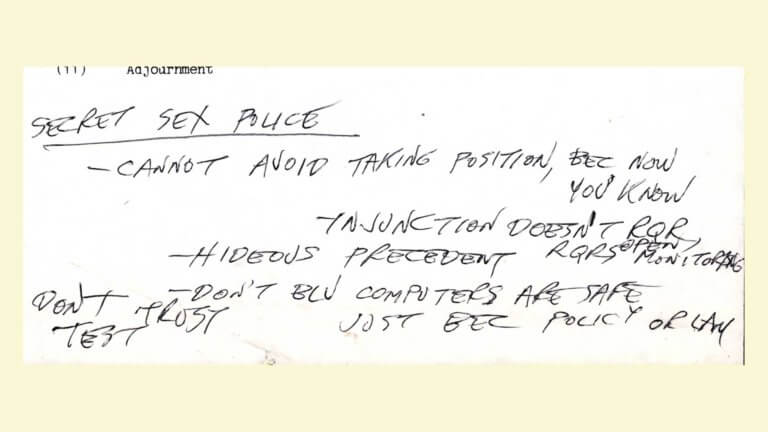 (11) Adjournment
SECRET SEX POLICE
- CANNOT AVOID TAKING POSITION, BEC NOW
YOU KNOW
- INJUNCTION DOESN'T RQR
- HIDEOUS PRECEDENT RQRS OPEN MONITORING
- DON'T BLV COMPUTERS ARE SAFE
JUST BEC POLICY OR LAW
DON'T TRUST
TEST